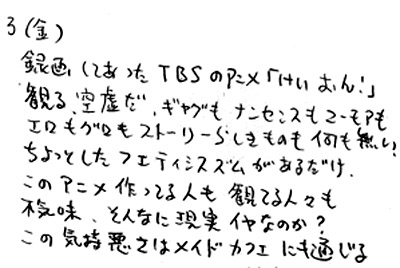 3 (金)
録画してあった TBSのアニメ「けいおん!」
観る、空虚だ、ギャグも ナンセンスも ユーモアも
エロもグロもストーリーらしきものも 何も無い!
ちょっとした フェティシズムがあるだけ.
このアニメ作ってる人も 観てる人々も
不気味、そんなに現実 イヤなのか?
この気持悪さはメイドカフェにも通じる